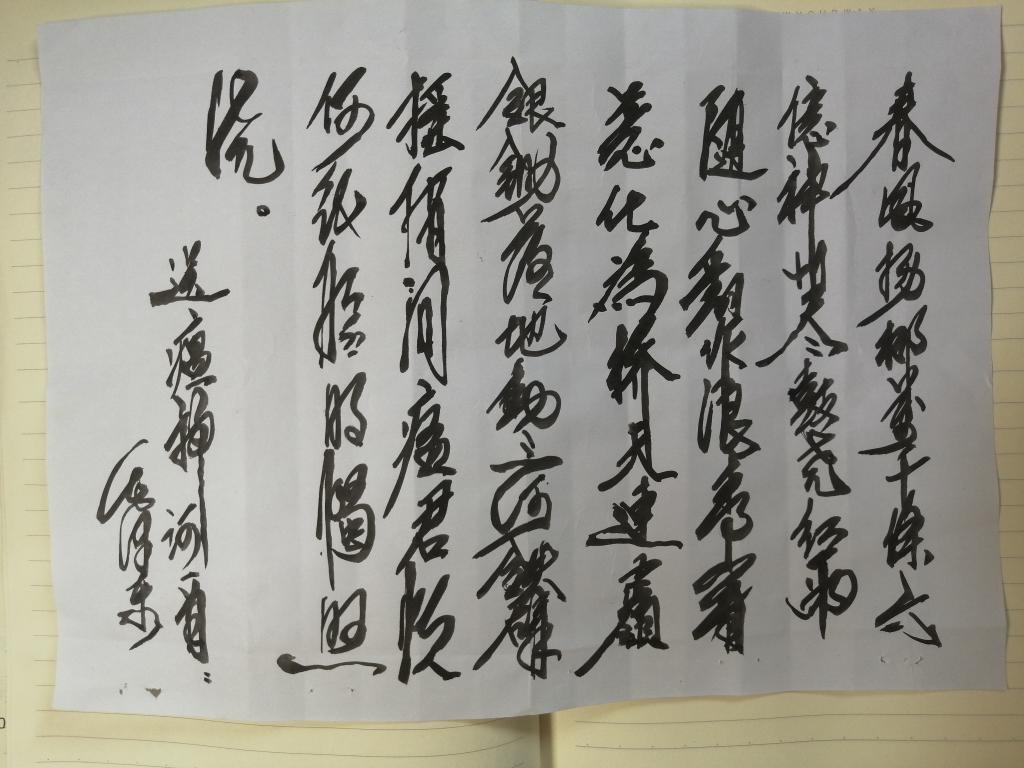 春風楊柳萬千條六
億神州盡舜尧紅雨
隨心翻作浪青山着
意化為橋天連五嶺
銀鋤落地動三河鐵臂
搖借問瘟君欲
何紙船明燭照
燒。
送瘟神詩首
毛澤東